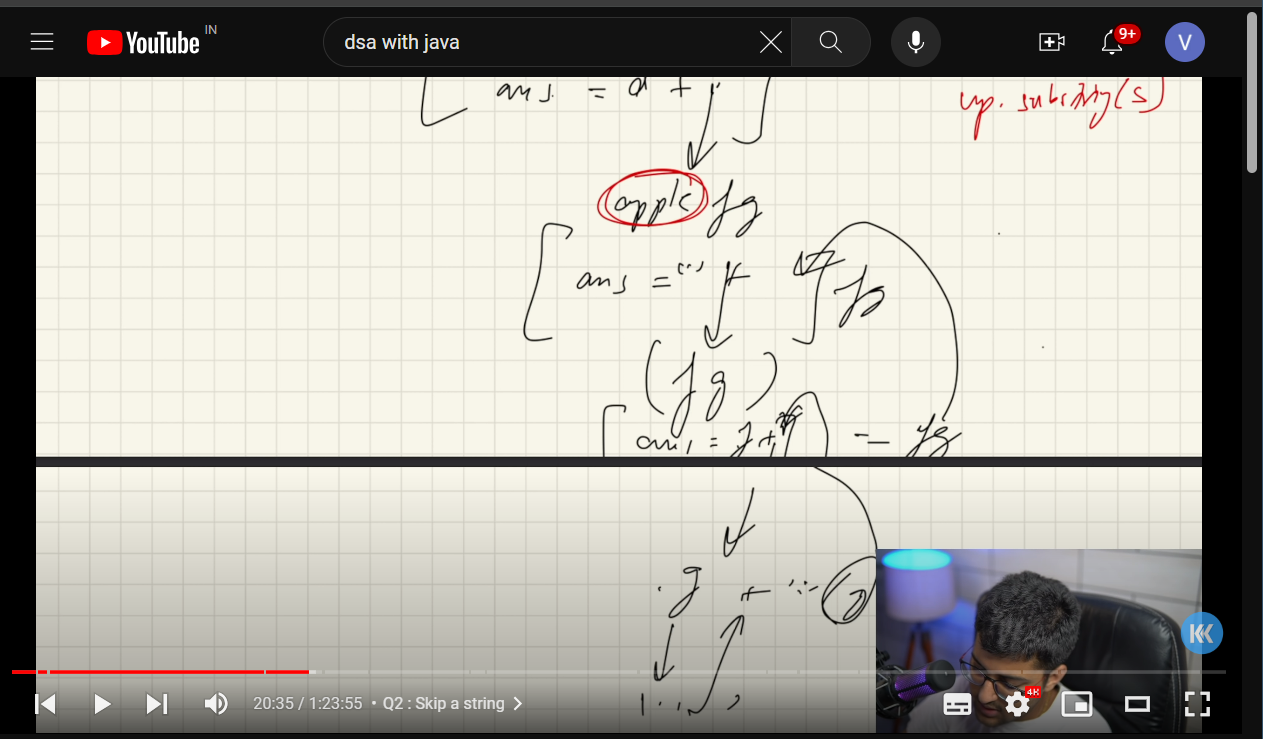 YouTube IN
dsa with java
9+
V
ans = a +
up. substring(s)
apple fg
ans = "" +
fg
(fg)
ans = f + = fg
g + "" g
K
20:35 / 1:23:55 • Q2 : Skip a string
4K